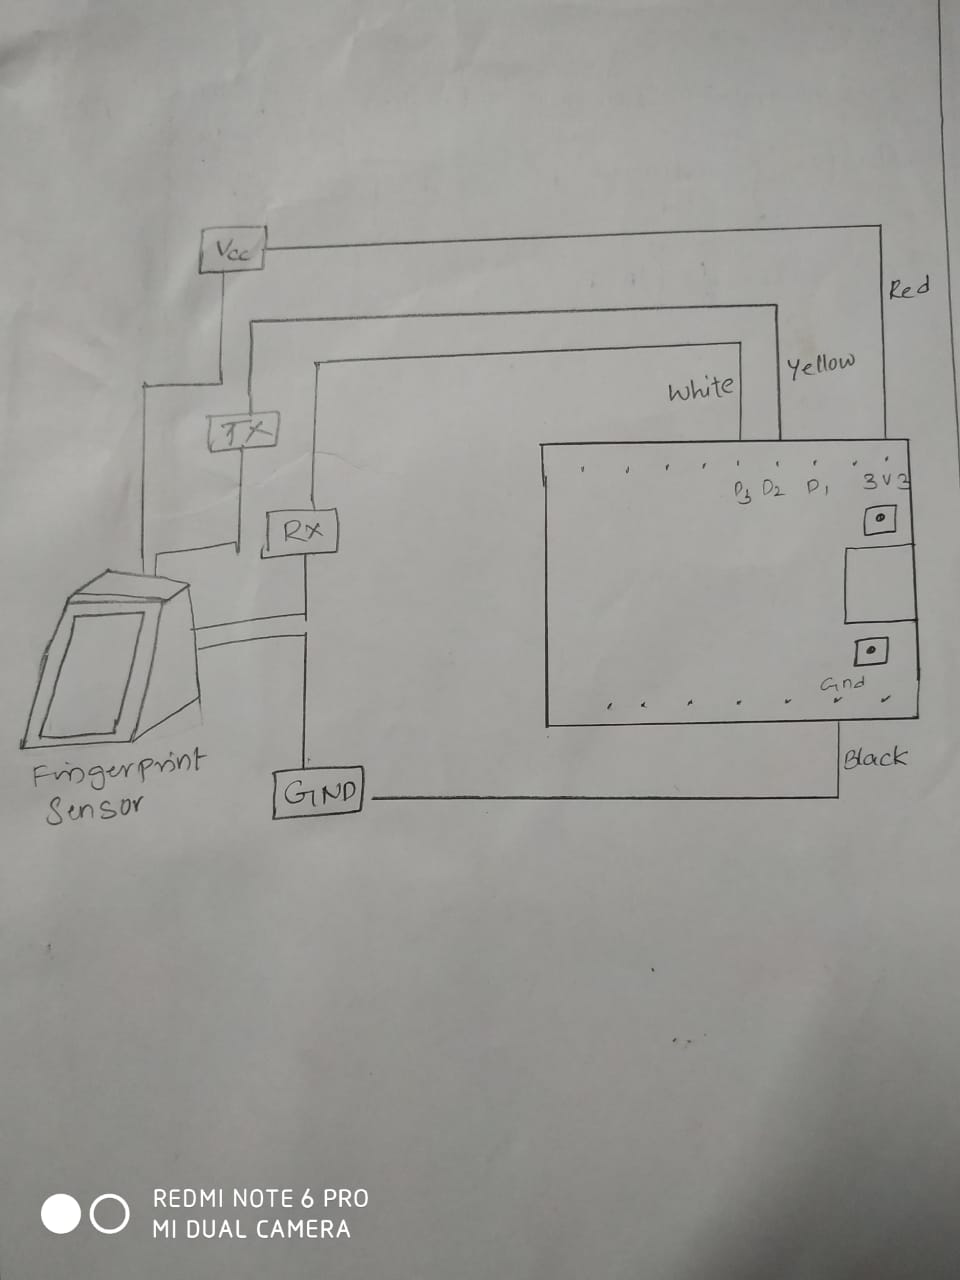 Vcc
Red
Yellow
White
TX
D3 D2 D1 3V3
RX
Gnd
Fingerprint
Sensor
Black
GND
REDMI NOTE 6 PRO
MI DUAL CAMERA